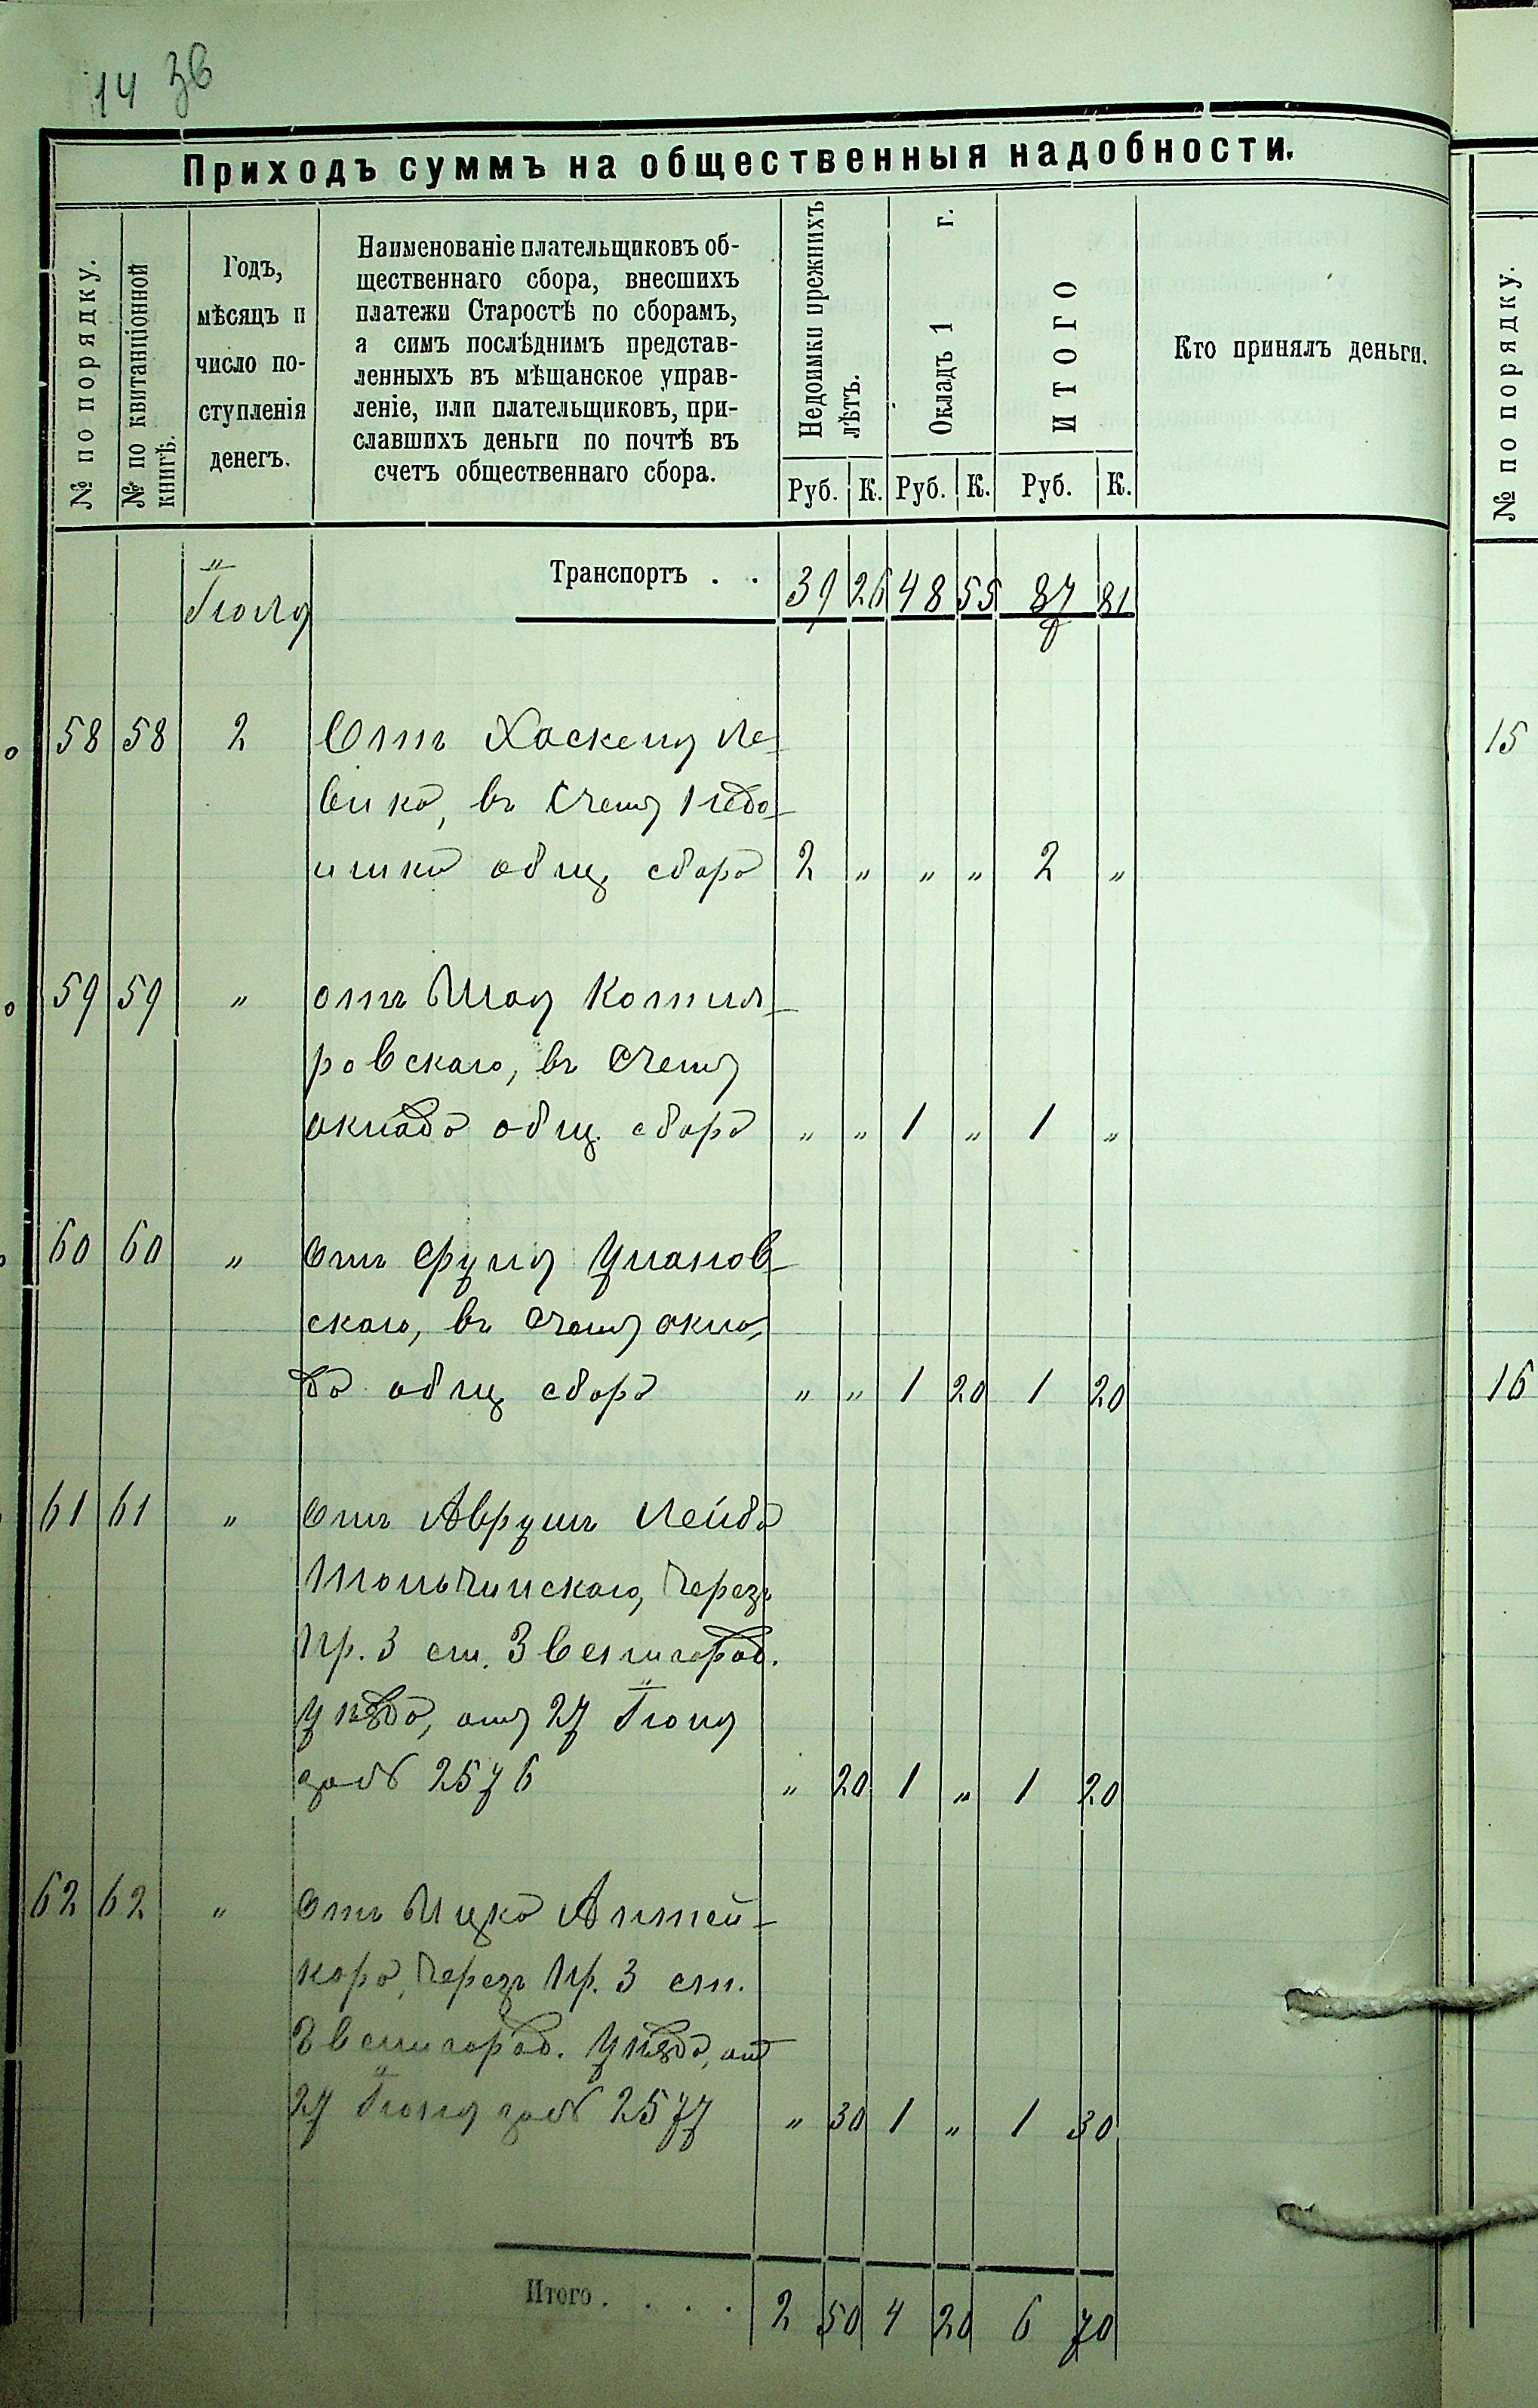 14 38
Приходъ суммъ на общественныя надобности.
№ по порядку.
№ по квитанціонной книгѣ.
Годъ,
мѣсяцъ и
число по-
ступленія
денегъ.
Наименованіе плательщиковъ об-
щественнаго сбора, внесшихъ
платежи Старостѣ по сборамъ,
а симъ послѣднимъ представ-
ленныхъ въ мѣщанское управ-
леніе, или плательщиковъ, при-
славшихъ деньги по почтѣ въ
счетъ общественнаго сбора.
Недоимки прежнихъ лѣтъ.
Окладъ 1 г.
ИТОГО
Кто принялъ деньги.
Руб. К. Руб. К. Руб. К.
№ по порядку.
Транспортъ . . 39 26 48 55 87 81
Іюля
58 58 2 Отъ Хаскеля Ле-
вика, въ счетъ недо-
имки общ. сбора 2 „ „ „ 2 „
15
59 59 „ отъ Шаи Котля-
ровскаго, въ счетъ
оклада общ. сбора „ „ 1 „ 1 „
60 60 „ Отъ Сруля Улановскаго, въ счетъ окла-
да общ. сбора „ „ 1 20 1 20
16
61 61 „ Отъ Аврумъ Лейба
Тольчинскаго, черезъ
Пр. 3 ст. Звенигород.
уѣзда, отъ 27 Іюня
за № 2576 „ 20 1 „ 1 20
62 62 „ Отъ Ицка Аптей-
кара, черезъ Пр. 3 ст.
Звенигород. уѣзда, от
27 Іюня за № 2577 „ 30 1 „ 1 30
Итого . . . . 2 50 4 20 6 70